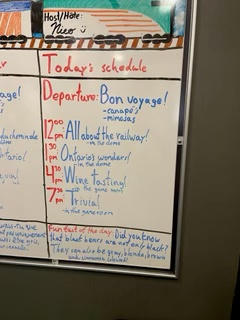 Host/Hôte:
Nico
Today's schedule
Departure: Bon voyage!
-canapés
-mimosas
12:00 pm All about the railway!
-in the dome
1:30 pm Ontario's wonders!
-in the dome
4:30 pm Wine tasting!
game room
7:30 pm Trivia!
-in the game room
Fun fact of the day: Did you know
that black bears are not only black?
They can also be gray, blonde, brown
and